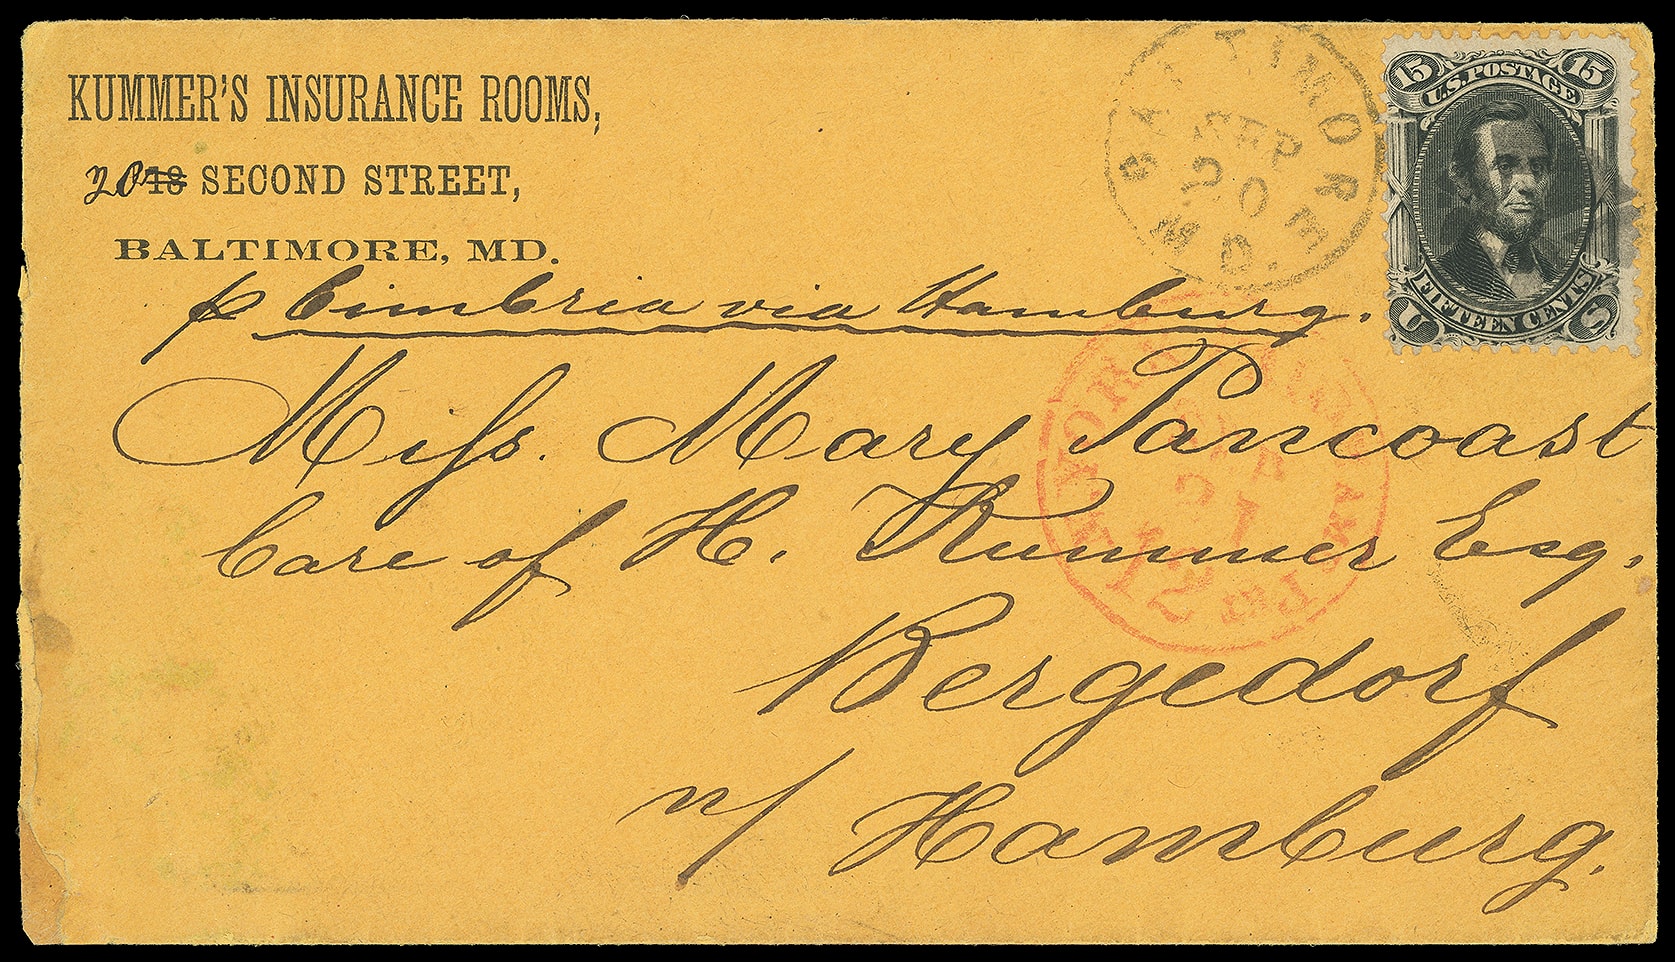 KUMMER'S INSURANCE ROOMS,
20 18 SECOND STREET,
BALTIMORE, MD.
BALTIMORE MD.
SEP
20
15 U.S. POSTAGE 15
U FIFTEEN CENTS S
p Cimbria via Hamburg.
Miss. Mary Pancoast
Care of H. Kummer Esq.
Bergedorf
n/ Hamburg.
YORK
21
12